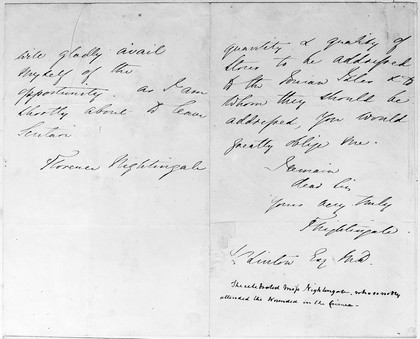 will gladly avail
myself of the
opportunity. as I am
shortly about to leave
Scutari
Florence Nightingale
quantity & quality of
Stores to be addressed
to the Ionian Isles & to
whom they should be
addressed, you would
greatly oblige me.
I remain
Dear Sir
Yours very truly
F Nightingale
Linton Esq MD.
The celebrated Miss Nightingale, who so nobly
attended the Wounded in the Crimea.